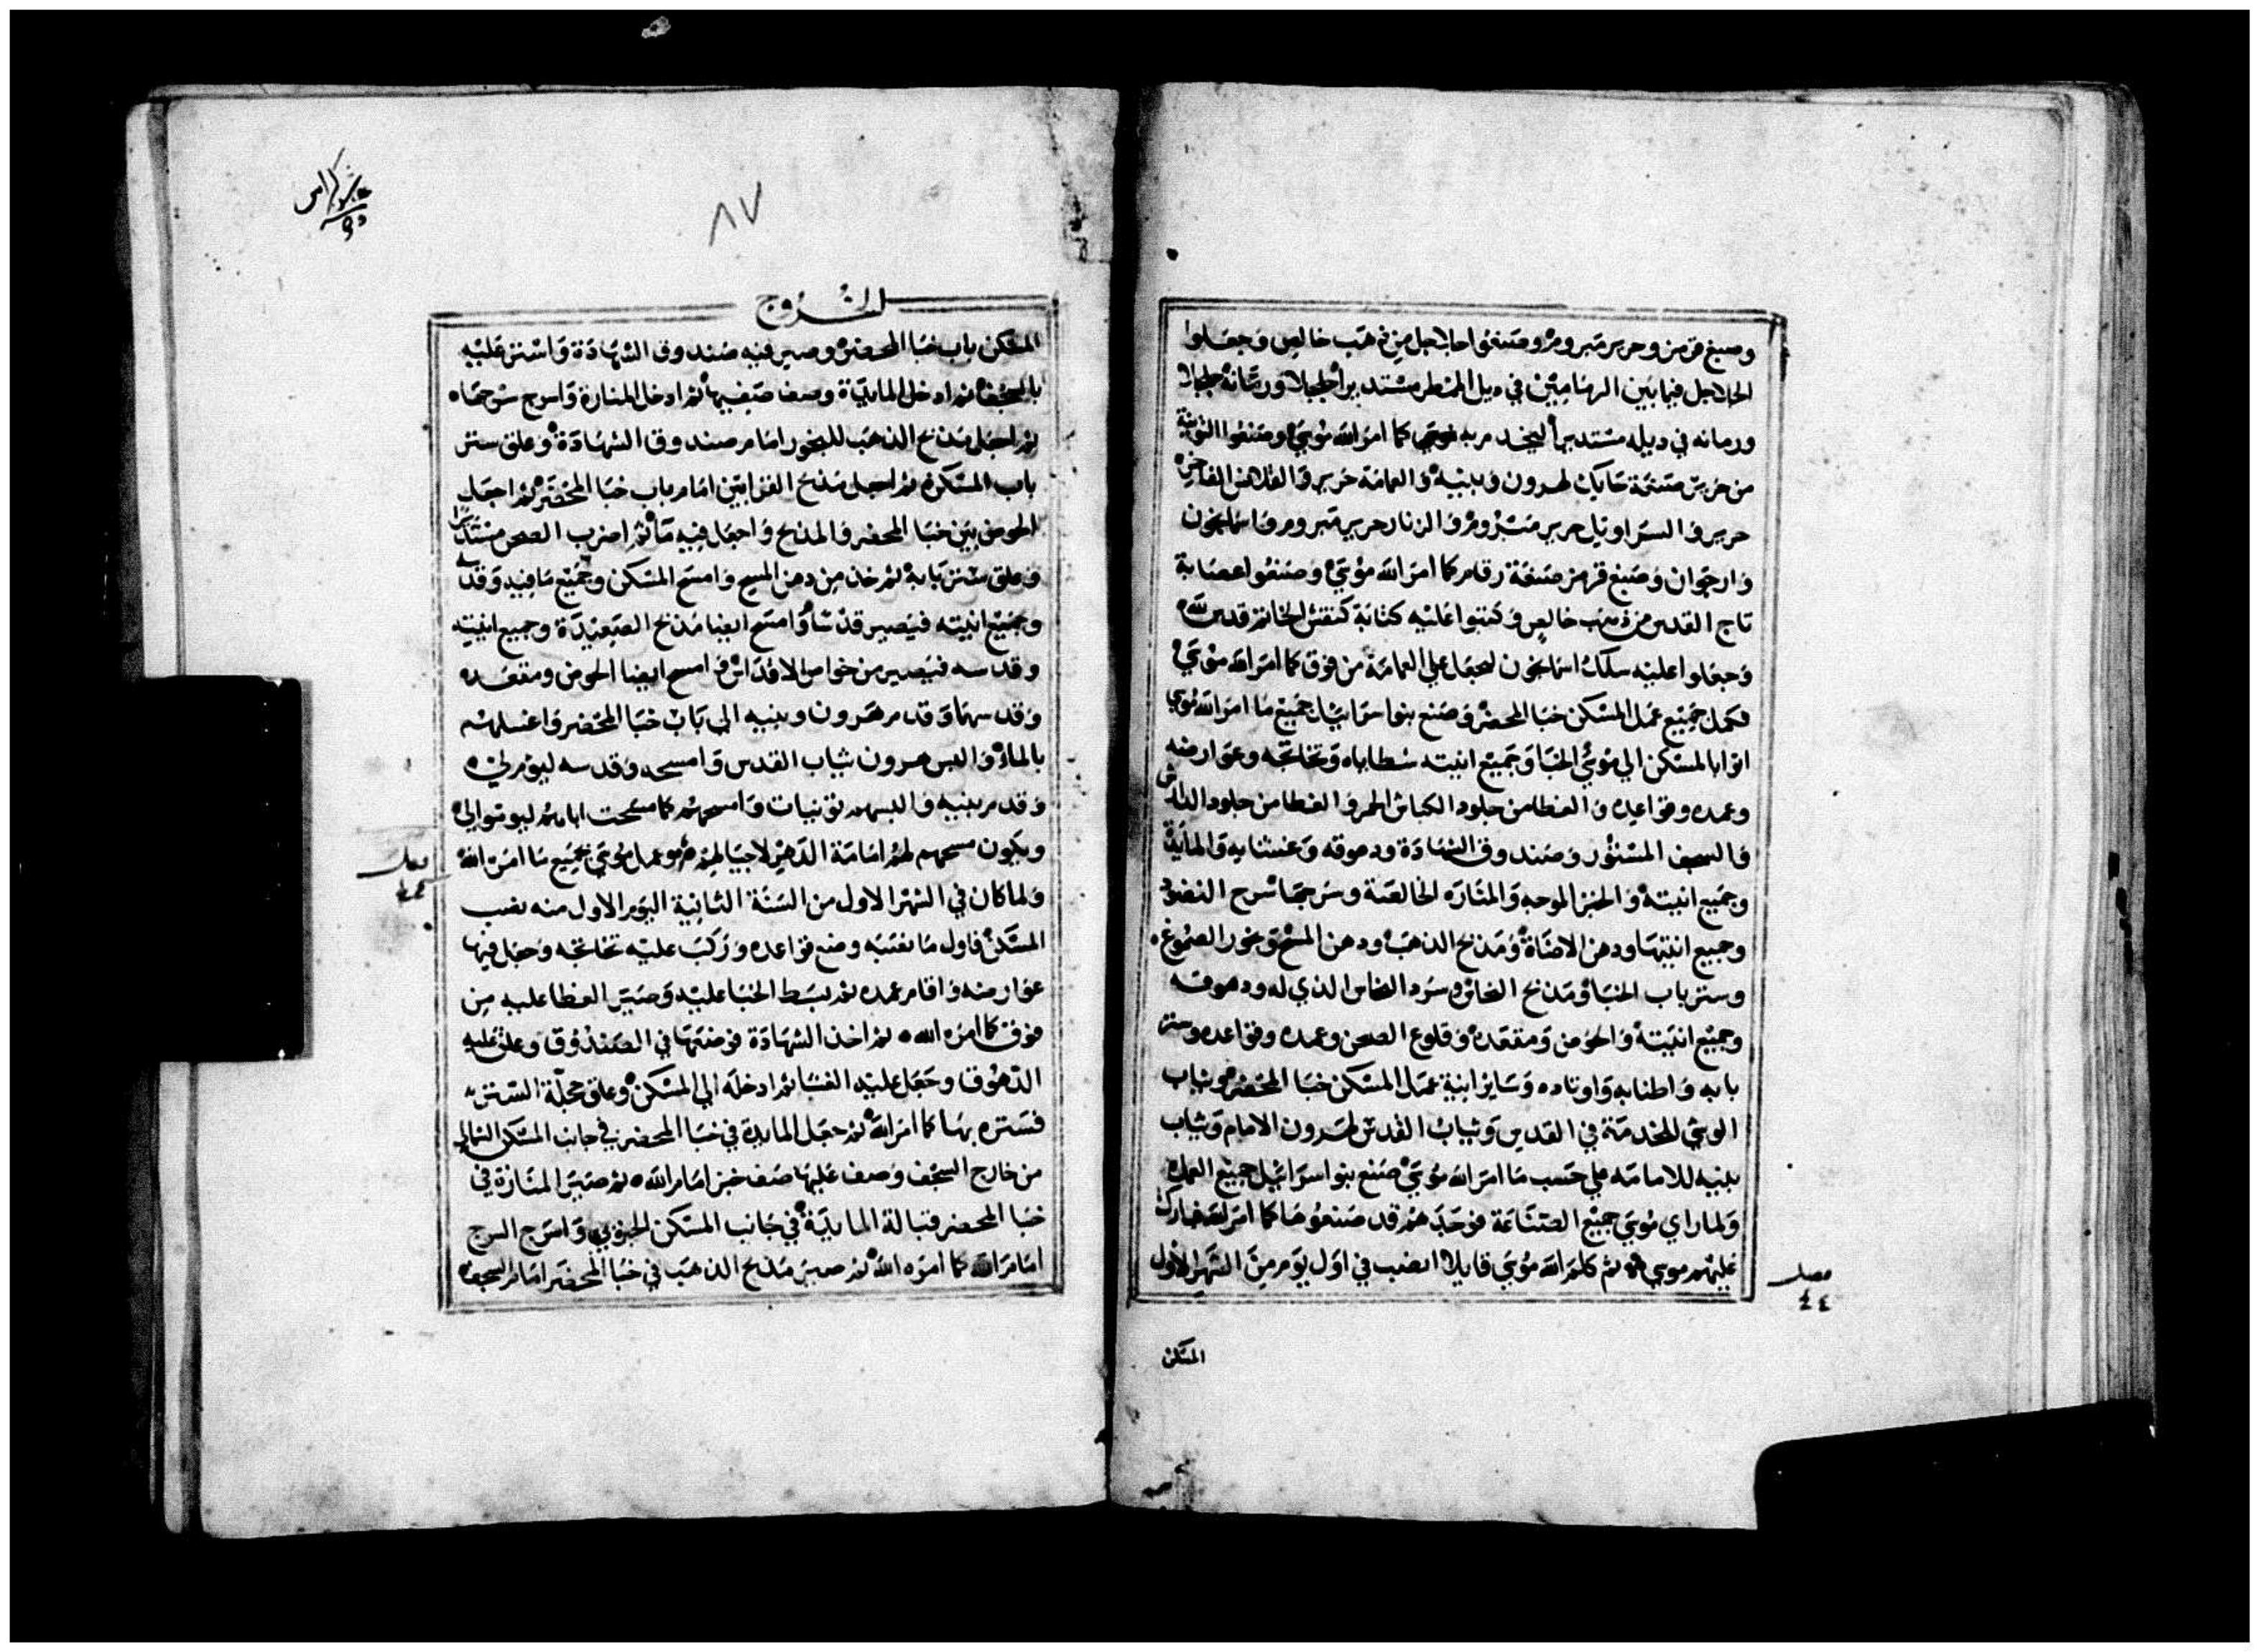 وصبغ قرمز وحرير مبروم وصنعوا جلاجل من ذهب خالص وجعلوا
الجلاجل فيما بين الرمامين في ديل الممطر مستديرا جلجلا ورمانه جلجلا
ورمانه في ديله مستديرا ليخدم به موسي كما امر الله موسي وصنعوا التونية
من عشر صنعة حايك لهرون وبنيه والعمامة حرير والقلانس الفاخره
حرير والسراويل حرير مشزور والزنار حرير مبروم واسمانجون
وارجوان وصبغ قرمز صنعة رقام كما امر الله موسي وصنعوا عصابة
تاج القدس من ذهب خالص وكتبوا عليه كتابة كنقش الخاتم قدس لله
وجعلوا عليه سلك اسمانجون ليجعل علي العمامة من فوق كما امر الله موسي
فكمل جميع عمل المسكن خبا المحضر وصنع بنو اسراييل جميع ما امر الله موسي
اتوا بالمسكن الي موسي الخبا وجميع انيته شظاياه وتخاتجه وعوارضه
وعمده وقواعده والغطا من جلود الكباش الحمر والغطا من جلود الدارش
والسجف المستور وصندوق الشهادة ودهوقه وغشايه والمايدة
وجميع انيته والخبز الموجه والمناره الخالصة وسرجها سرج النضود
وجميع انيتها ودهن الاضاة ومذبح الذهب ودهن المسح وبخور الصموغ
وستر باب الخبا ومذبح النحاس وسرد النحاس الذي له ودهوقه
وجميع انيته والحوض ومقعده وقلوع الصحن وعمده وقواعده وستر
بابه واطنابه واوتاده وساير ابنية عمل المسكن خبا المحضر وثياب
الوشي للخدمة في القدس وثياب القدس لهرون الامام وثياب
بنيه للامامه علي حسب ما امر الله موسي صنع بنو اسراييل جميع العمل
ولما راي موسي جميع الصناعة فوجدهم قد صنعوها كما امر الله فبارك
عليهم موسي ثم كلم الله موسي قايلا انصب في اول يوم من الشهر الاول
فصل
٤٤
المسكن
٨٧
الخروج
المسكن باب خبا المحضر وصير فيه صندوق الشهادة واستر عليه
بالسجف ثم ادخل المايدة وصف صفيها ثم ادخل المنارة واسرج سرجها
ثم اجعل مذبح الذهب للبخور امام صندوق الشهادة وعلق ستر
باب المسكن ثم اجعل مذبح القرابين امام باب خبا المحضر ثم اجعل
الحوض بين خبا المحضر والمذبح واجعل فيه ما ثم اضرب الصحن مستديرا
وعلق ستر بابه ثم خذ من دهن المسح وامسح المسكن وجميع ما فيه وقدسه
وجميع انيته فيصير قدسا وامسح ايضا مذبح الصعيدة وجميع انيته
وقدسه فيصير من خواص الاقداس وامسح ايضا الحوض ومقعده
وقدسهما وقدم هرون وبنيه الي باب خبا المحضر واغسلهم
بالماء والبس هرون ثياب القدس وامسحه وقدسه ليؤم لي
وقدم بنيه والبسهم تونيات وامسحهم كما مسحت اباهم ليوموا لي
ويكون مسحهم لهم امامة الدهر لاجيالهم وعمل موسي بجميع ما امره الله
ولما كان في الشهر الاول من السنة الثانية اليوم الاول منه نصب
المسكن فاول ما نصبه وضع قواعده وركب عليه تخاتجه وجعل فيها
عوارضه واقام عمده ثم بسط الخبا عليه وصير الغطا عليه من
فوق كما امره الله ثم اخذ الشهادة فوضعها في الصندوق وعلق عليه
الدهوق وجعل عليه الغشا ثم ادخله الي المسكن وعلق مجلة الستر
فستره بها كما امر الله ثم جعل المايدة في خبا المحضر في جانب المسكن الشمالي
من خارج السجف وصف عليها صف خبز امام الله ثم صير المنارة في
خبا المحضر قبالة المايدة في جانب المسكن الجنوبي واسرج السرج
امام الله كما امره الله ثم صير مذبح الذهب في خبا المحضر امام السجف
فصل